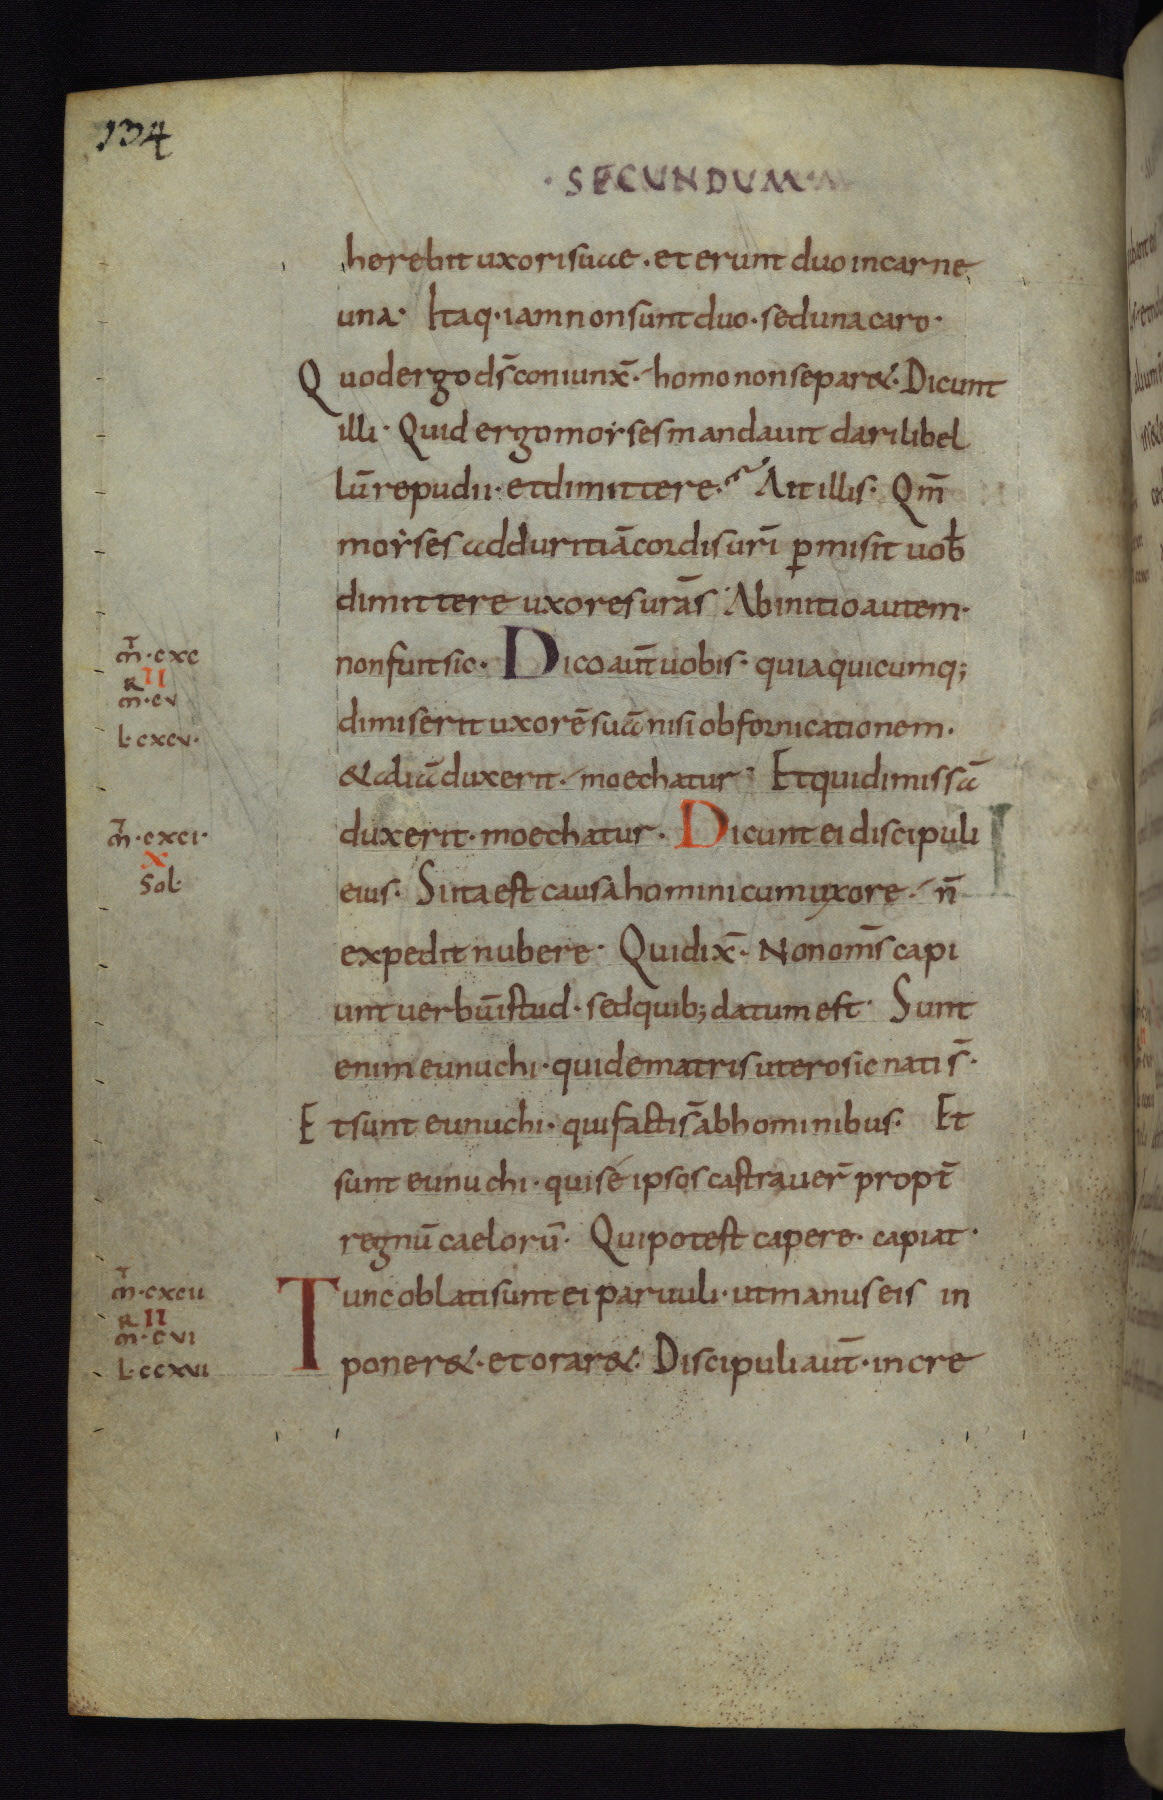 134
· SECUNDUM ·
herebit uxori suae · et erunt duo in carne
una · Itaq · iam non sunt duo · sed una caro ·
Quod ergo ds̄ coniunx̄ · homo non separ& · Dicunt
illi · Quid ergo moyses mandauit dari libel
lū repudii · et dimittere · Ait illis · Qm̄
moyses ad duritiā cordis ur̄i p̱misit uob̄
dimittere uxores urās · Ab initio autem ·
non fuit sic · Dico aut̄ uobis · quia quicumq;
dimiserit uxorē suā nisi ob fornicationem ·
& aliā duxerit · moechatur · Et qui dimissā
duxerit · moechatur · Dicunt ei discipuli
eius · Si ita est causa homini cum uxore · n̄
expedit nubere · Qui dix̄ · Non om̄s capi
unt uerbū istud · sed quib; datum est · Sunt
enim eunuchi · qui de matris utero sic nati s̄ ·
Et sunt eunuchi · qui facti s̄ ab hominibus · Et
sunt eunuchi · qui se ipsos castrauer̄ propt̄
regnū caelorū · Qui potest capere · capiat ·
Tunc oblati sunt ei paruuli · ut manus eis in
poner& · et orar& · Discipuli aut̄ · incre
m̄ · cxc
II
R
m · cv
L · cxcv ·
m̄ · cxci ·
X
Sol
m̄ · cxcii
R II
m · cvi
L · ccxvi